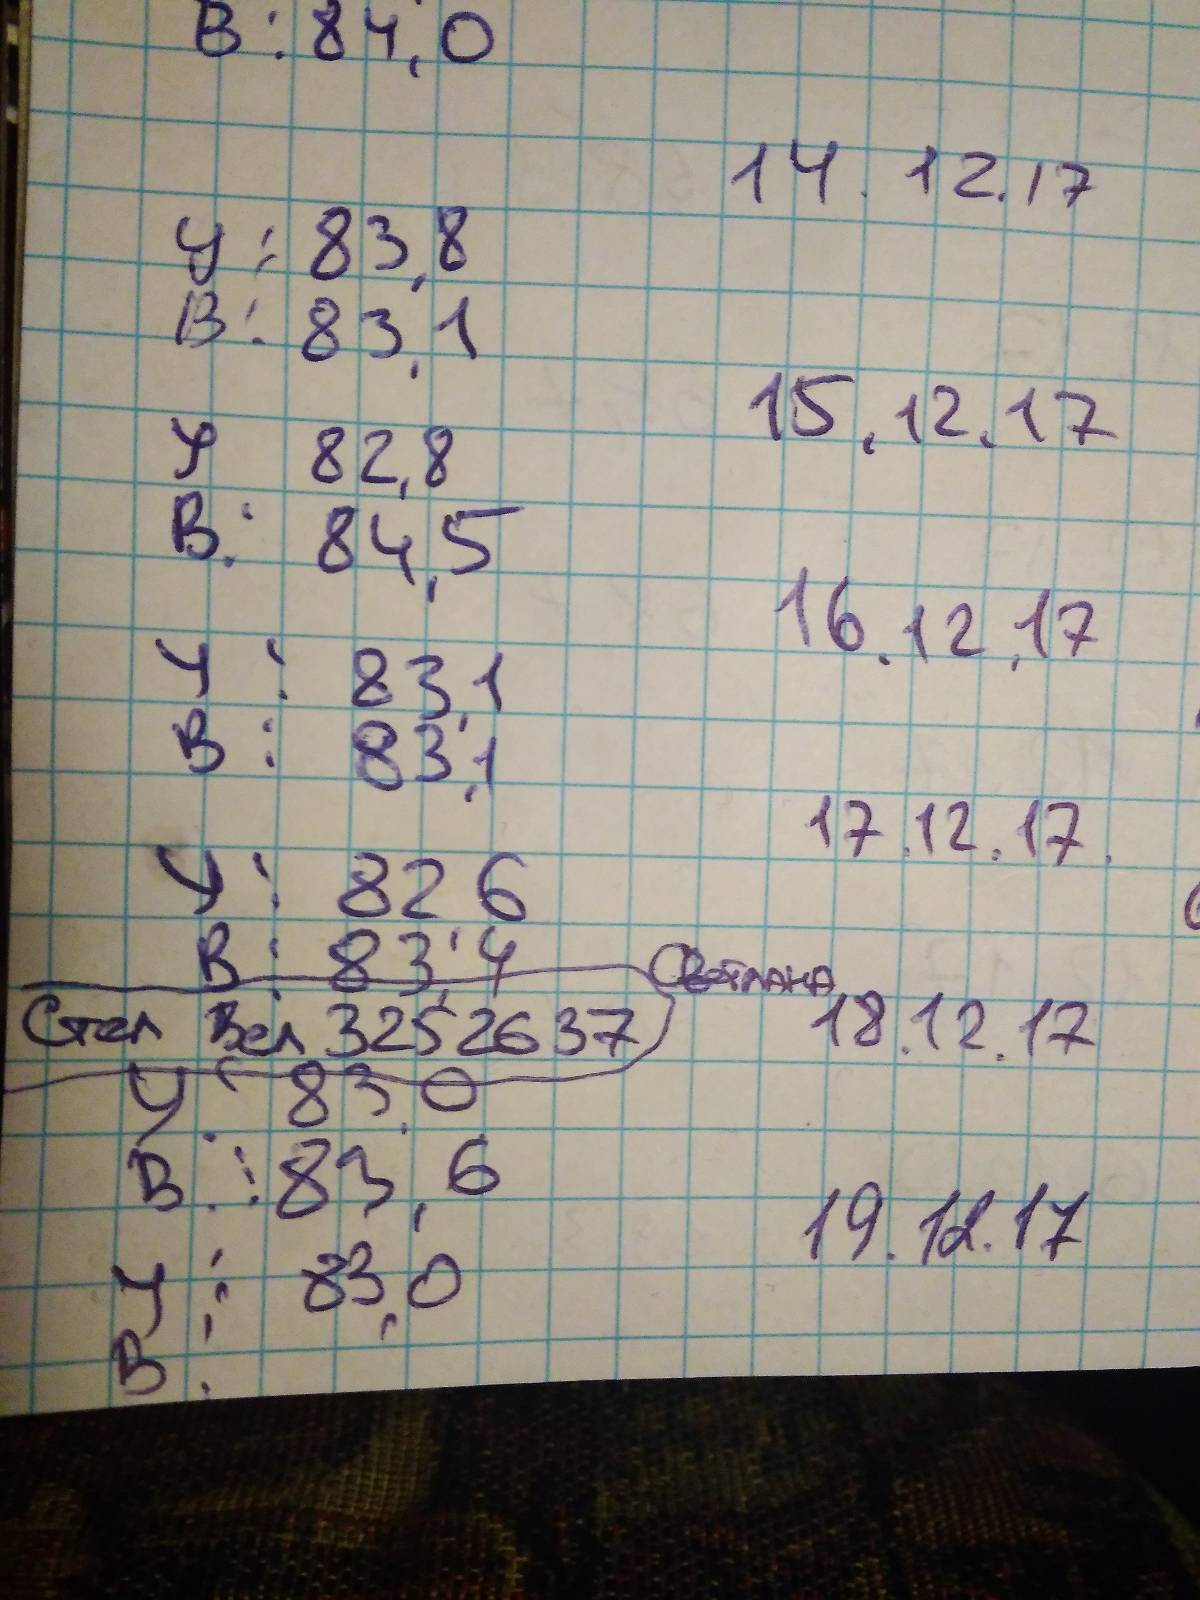 В: 84,0
14.12.17
У: 83,8
В: 83,1
15.12.17
У 82,8
В: 84,5
16.12.17
У: 83,1
В: 83,1
17.12.17.
У: 82,6
В: 83,4
Светлана
Стел Вел 3252637
18.12.17
У: 83,0
В: 83,6
19.12.17
У: 83,0
В: